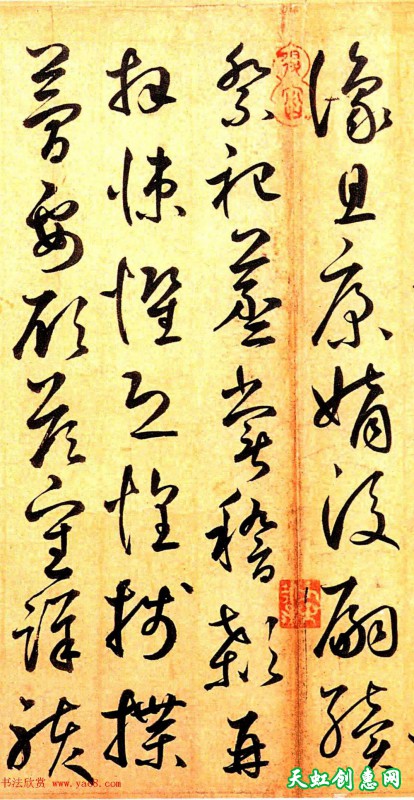 豫且康嫡後嗣續
祭祀蒸嘗稽顙再
拜悚懼恐惶牋牒
簡要顧答審詳骸
书法欣赏 www.yac8.com
天虹创惠网